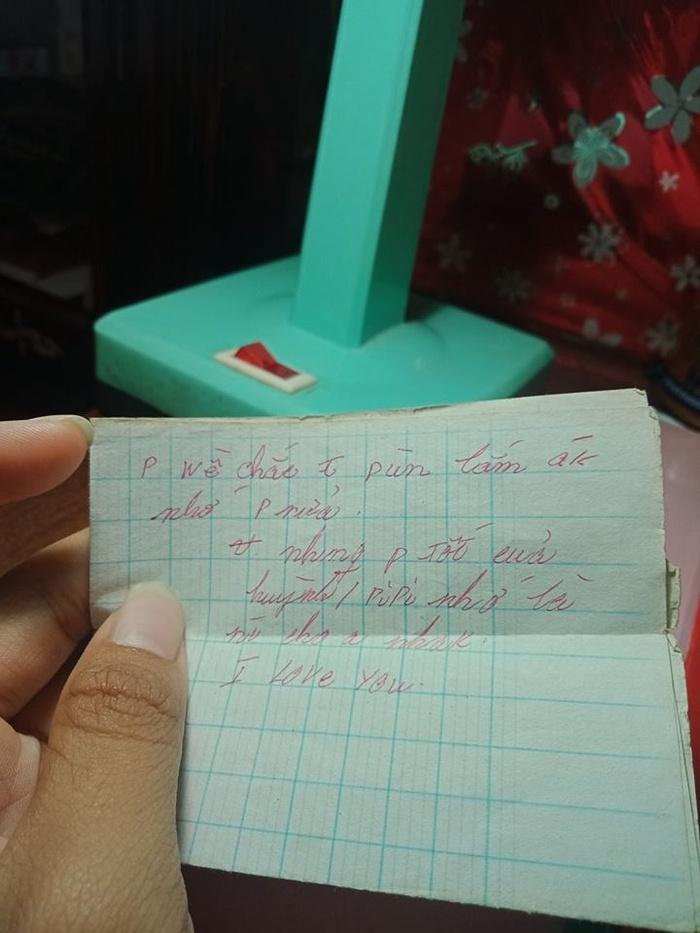 P wề chắc T pùn lắm ák
nhớ P nữa.
nhưng p Tốt của
huỳnh / PiPi nhớ là
cho a nhak.
I Love You.